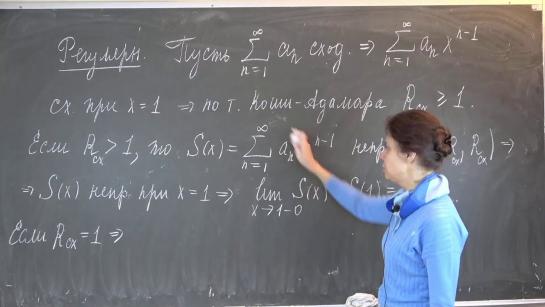 Регулярн. Пусть \sum_{n=1}^{\infty} a_n сход. ⇒ \sum_{n=1}^{\infty} a_n x^{n-1}
сх. при x=1 ⇒ по т. Коши-Адамара R_{сх} ≥ 1.
Если R_{сх} > 1, то S(x) = \sum_{n=1}^{\infty} a_n x^{n-1} непр R_{сх}) ⇒
⇒ S(x) непр. при x=1 ⇒ lim_{x→1-0} S(x)
Если R_{сх} = 1 ⇒